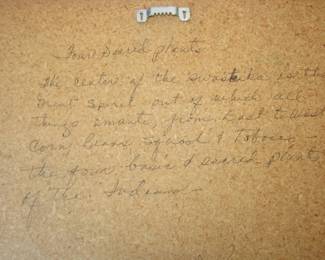 Four Sacred plants
The center of the swastika is the
Great Spirit out of which all
things emante from East to West
Corn Beans Squash & Tobacco -
the four basic & sacred plants
of the Indians -